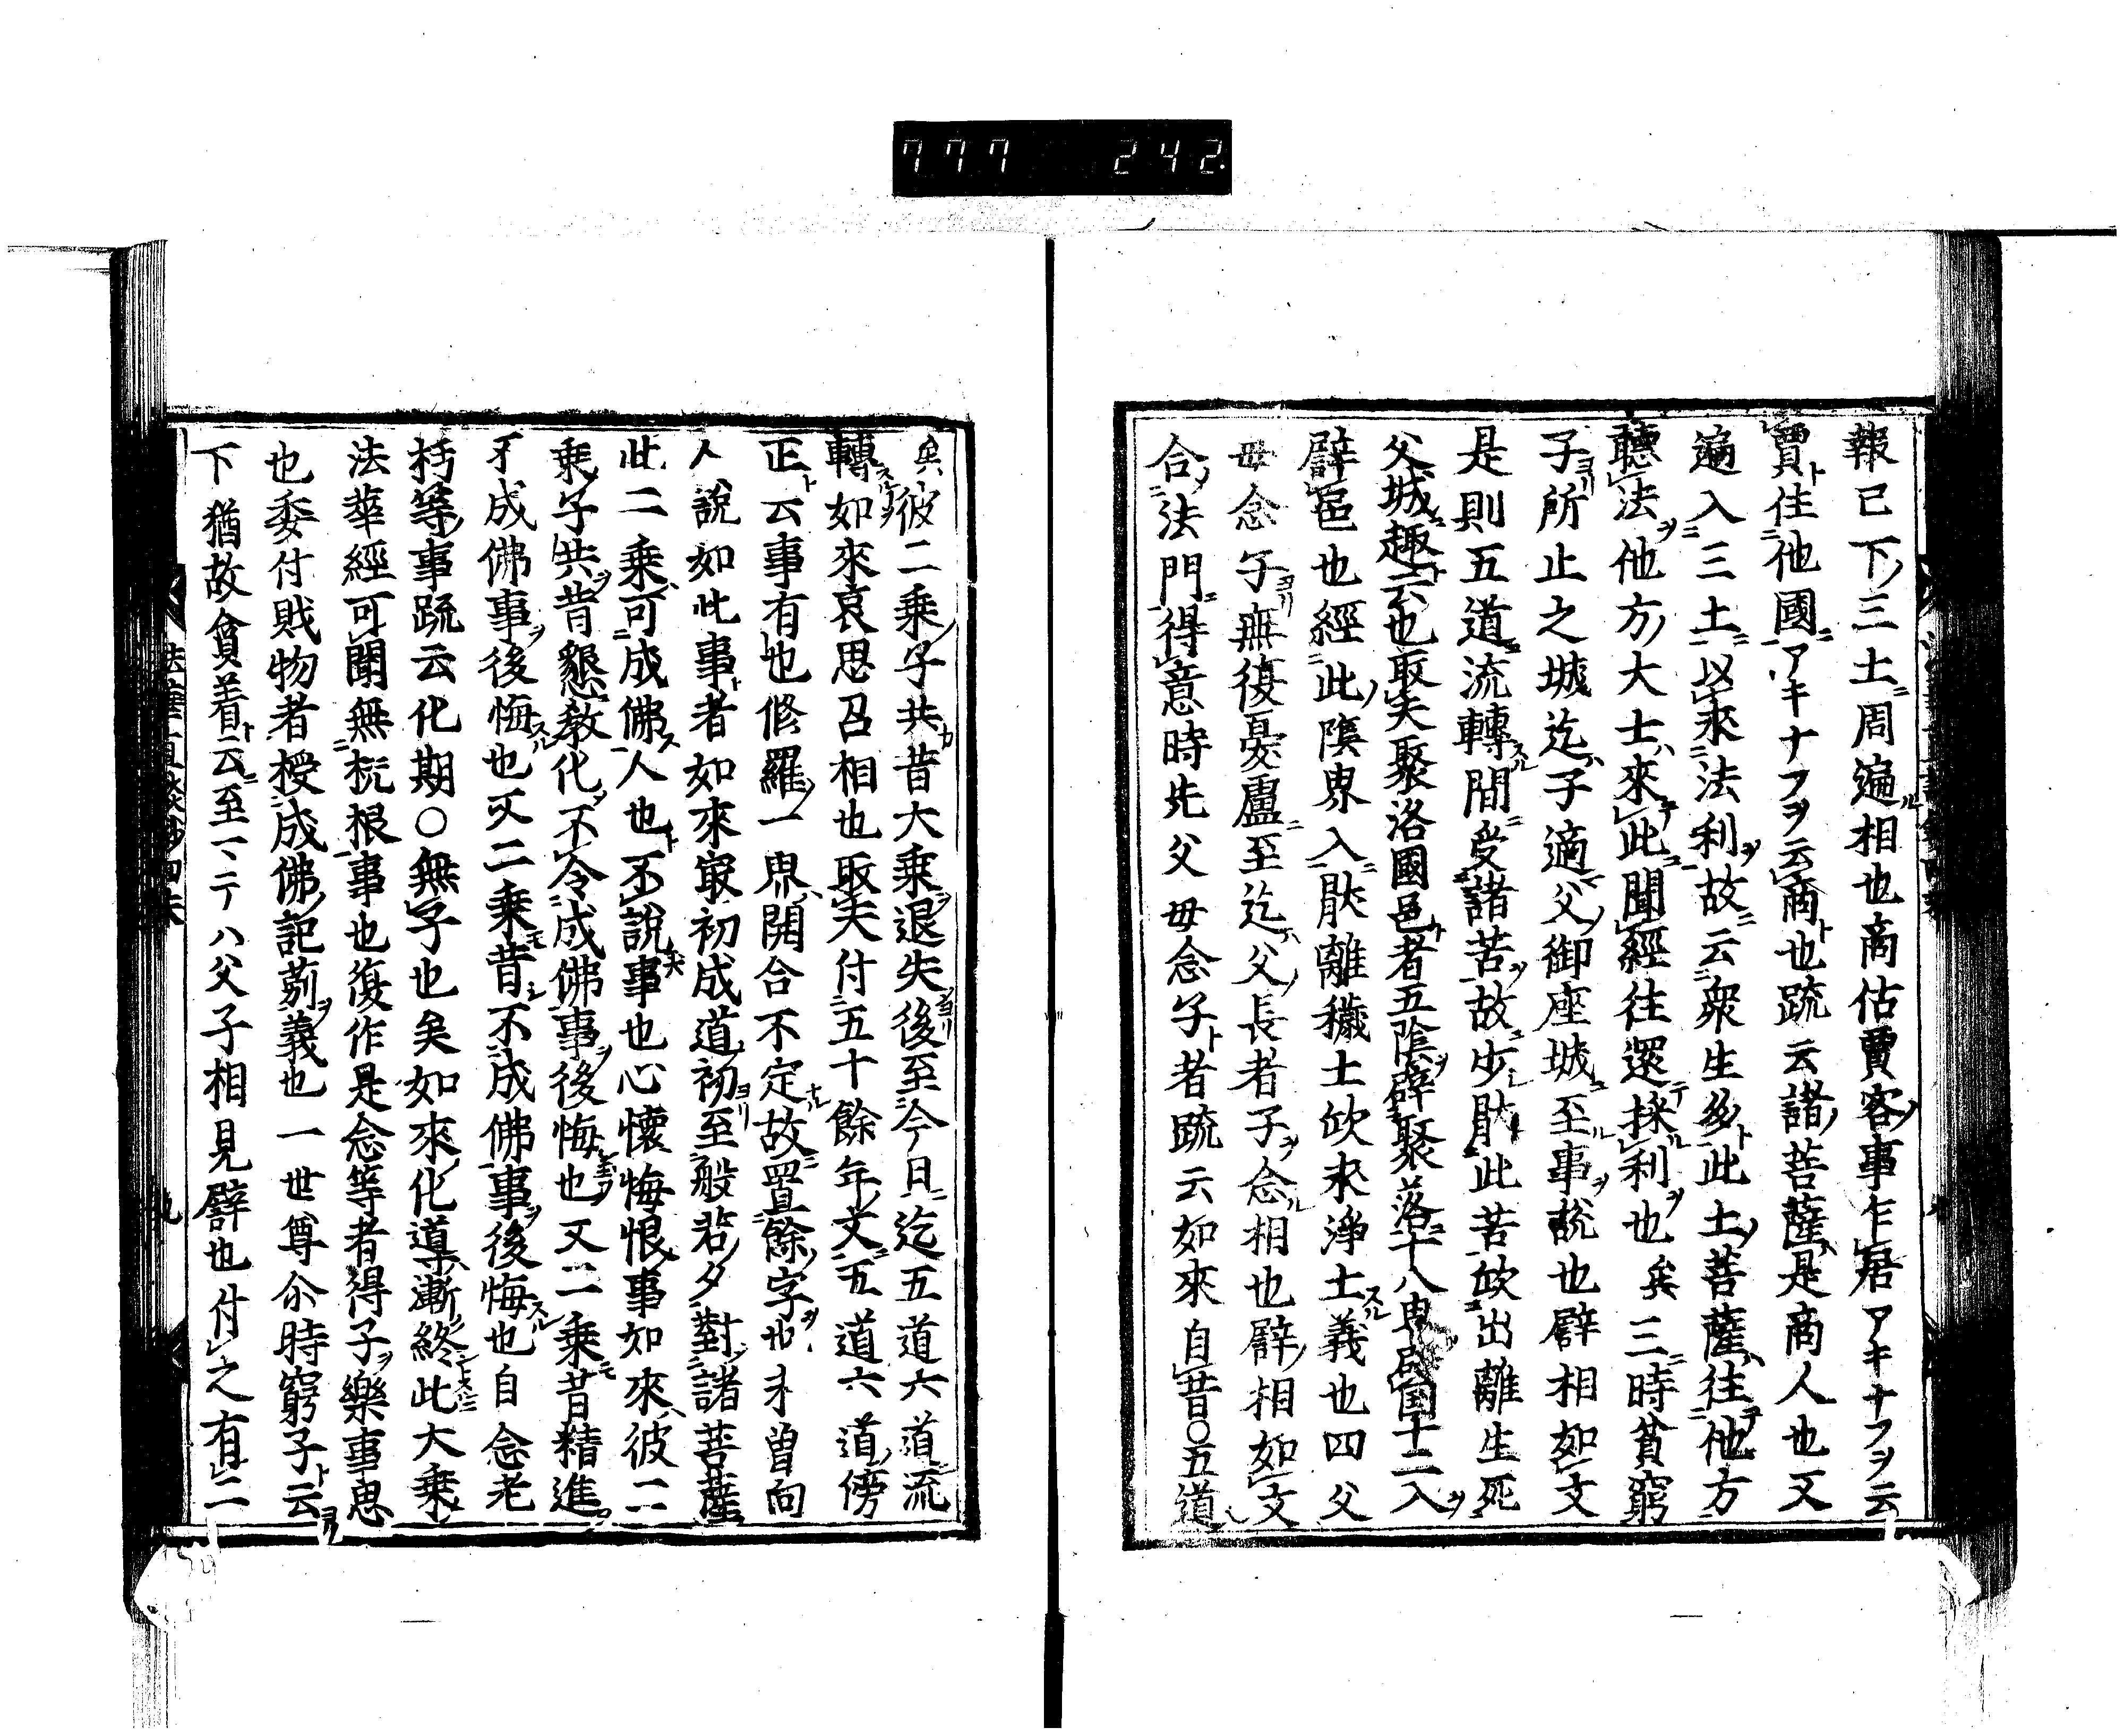 777 242.
報已下三土周遍相也商估賈客事乍居アキナフヲ云
賈住他國アキナフヲ云商也疏云諸菩薩是商人也又
遍入三土以求法利故云衆生多此土菩薩往他方
聽法他方大士來此聞經往還採利也矣三時貧窮
子所止之城迄子適父御座城至事說也譬相如文
是則五道流轉間受諸苦故少此苦欣出離生死
父城趣云也取夫聚洛國邑者五陰譬聚落十八界國十二入
譬邑也經此陰界入離穢土欣求淨土義也四父
母念子無復憂慮至迄父長者子念相也譬相如文
合法門得意時先父母念子者疏云如來自昔〇五道
矣彼二乘子共昔大乘退失後至今日迄五道六道流
轉如來哀思召相也取夫付五十餘年文五道六道傍
正云事有也修羅一界開合不定故置餘字也未曾向
人說如此事者如來最初成道初至般若夕對諸菩薩
此二乘可成佛人也不說事也心懷悔恨事如來彼二
乘子共昔懇敎化不令成佛事後悔也又二乘昔精進
不成佛事後悔也又二乘昔不成佛事後悔也自念老
朽等事疏云化期〇無子也矣如來化導漸終此大乘
法華經可聞無机根事也復作是念等者得子樂事思
也委付財物者授成佛記莂義也一世尊尒時窮子云
下猶故貧着云至一丁八父子相見譬也付之有二